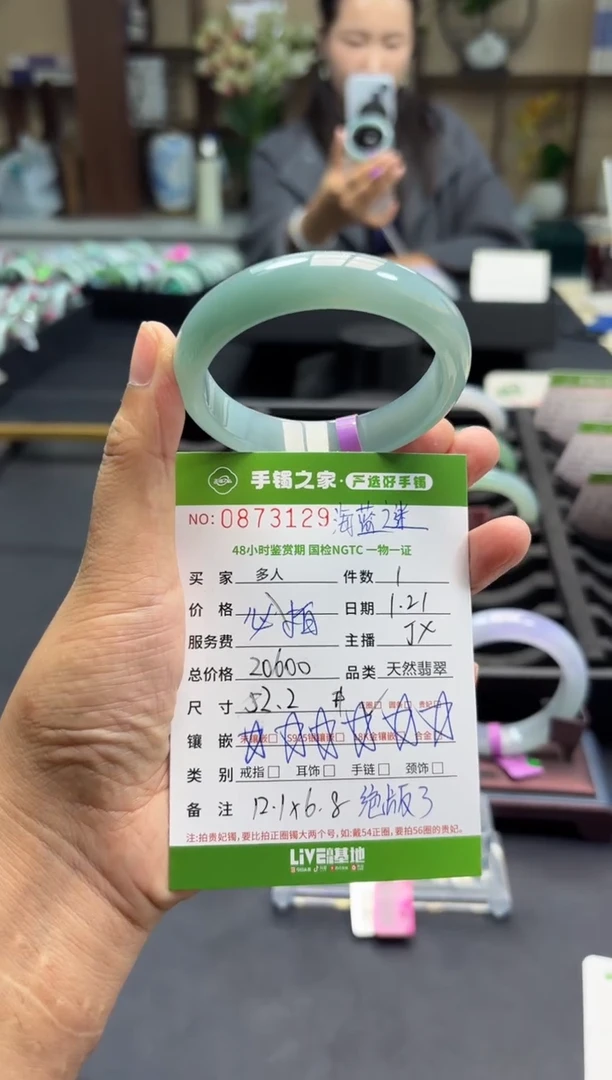 手镯之家·严选好手镯
NO:0873129 海蓝之迷
48小时鉴赏期 国检NGTC 一物一证
买家 多人 件数 1
价格 必拍 日期 1.21
服务费 主播 JX
总价格 20600 品类 天然翡翠
尺寸 52.2
镶嵌
类别 戒指□ 耳饰□ 手链□ 颈饰□
备注 12.1×6.8 绝版了
注:拍贵妃镯,要比拍正圈镯大两个号,如:戴54正圈,要拍56圈的贵妃。
LiVE直播基地